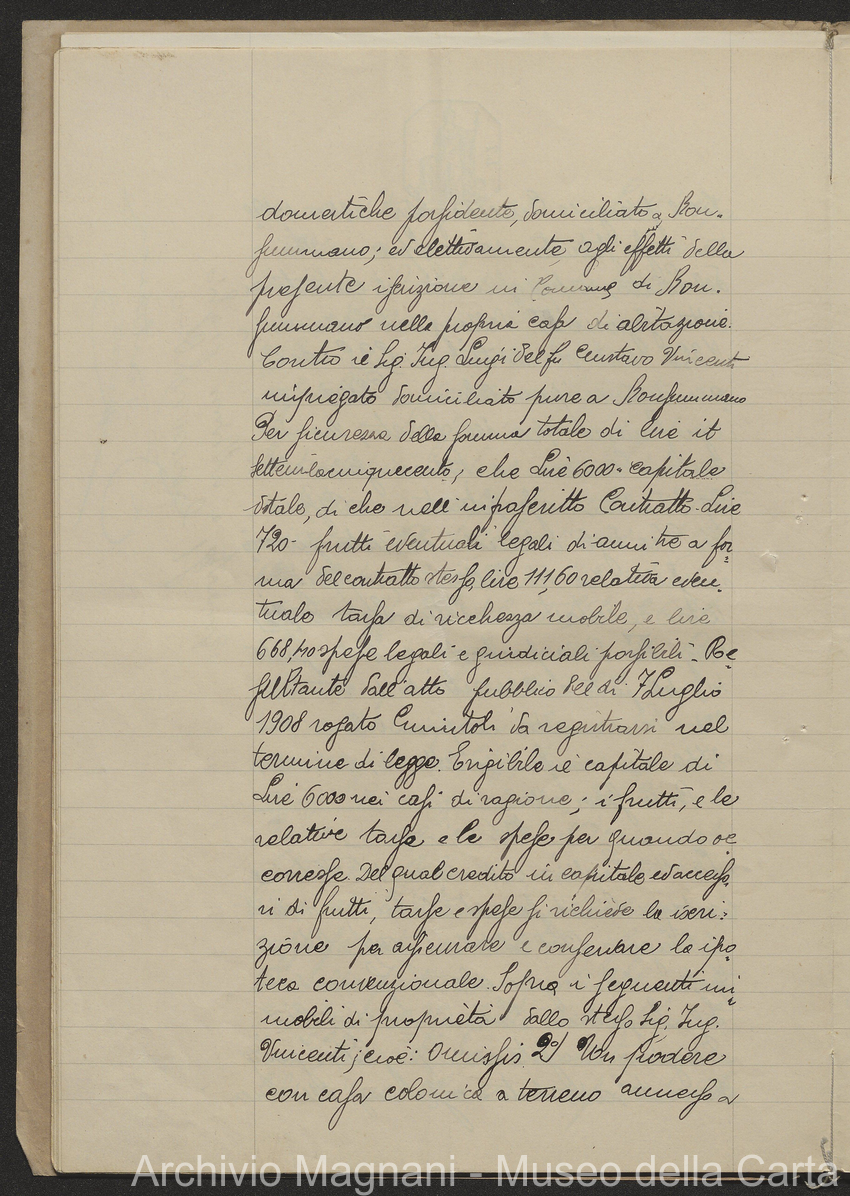 domestiche possidente, domiciliato a Mon-
summano; ed elettivamente agli effetti della
presente iscrizione in Comune di Mon-
summano nella propria casa di abitazione.
Contro il Sig. Ing. Luigi del fu Gustavo Vincenti
impiegato domiciliato pure a Monsummano
Per sicurezza della somma totale di lire it
settemilacinquecento, che Lire 6000- capitale
totale, di che nell'infrascritto Contratto- Lire
720- frutti eventuali legali di anni tre a for=
ma del contratto stesso, lire 111,60 relativa even-
tuale tassa di ricchezza mobile, e lire
668,40 spese legali e giudiziali possibili- Re=
sultante dall'atto pubblico del dì 7 Luglio
1908 rogato da registrarsi nel
termine di legge. Esigibile il capitale di
Lire 6000 nei casi di ragione; i frutti, e le
relative tasse e le spese per quando oc
corresse. Del qual credito in capitale ed accesso-
ri di frutti, tasse e spese si richiede la iscri=
zione per assicurare e conservare la ipo=
teca convenzionale. Sopra i seguenti im=
mobili di proprietà dello stesso Sig. Ing.
Vincenti; cioè: Omissis 2°) Un podere
con casa colonica a terreno annesso a
Archivio Magnani - Museo della Carta